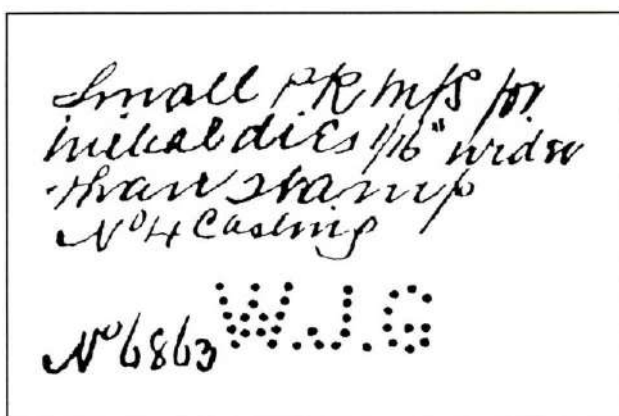 Small PR M/S for
initial dies 1/16" wider
than stamp
No 4 Casting
No 6863 W.J.G